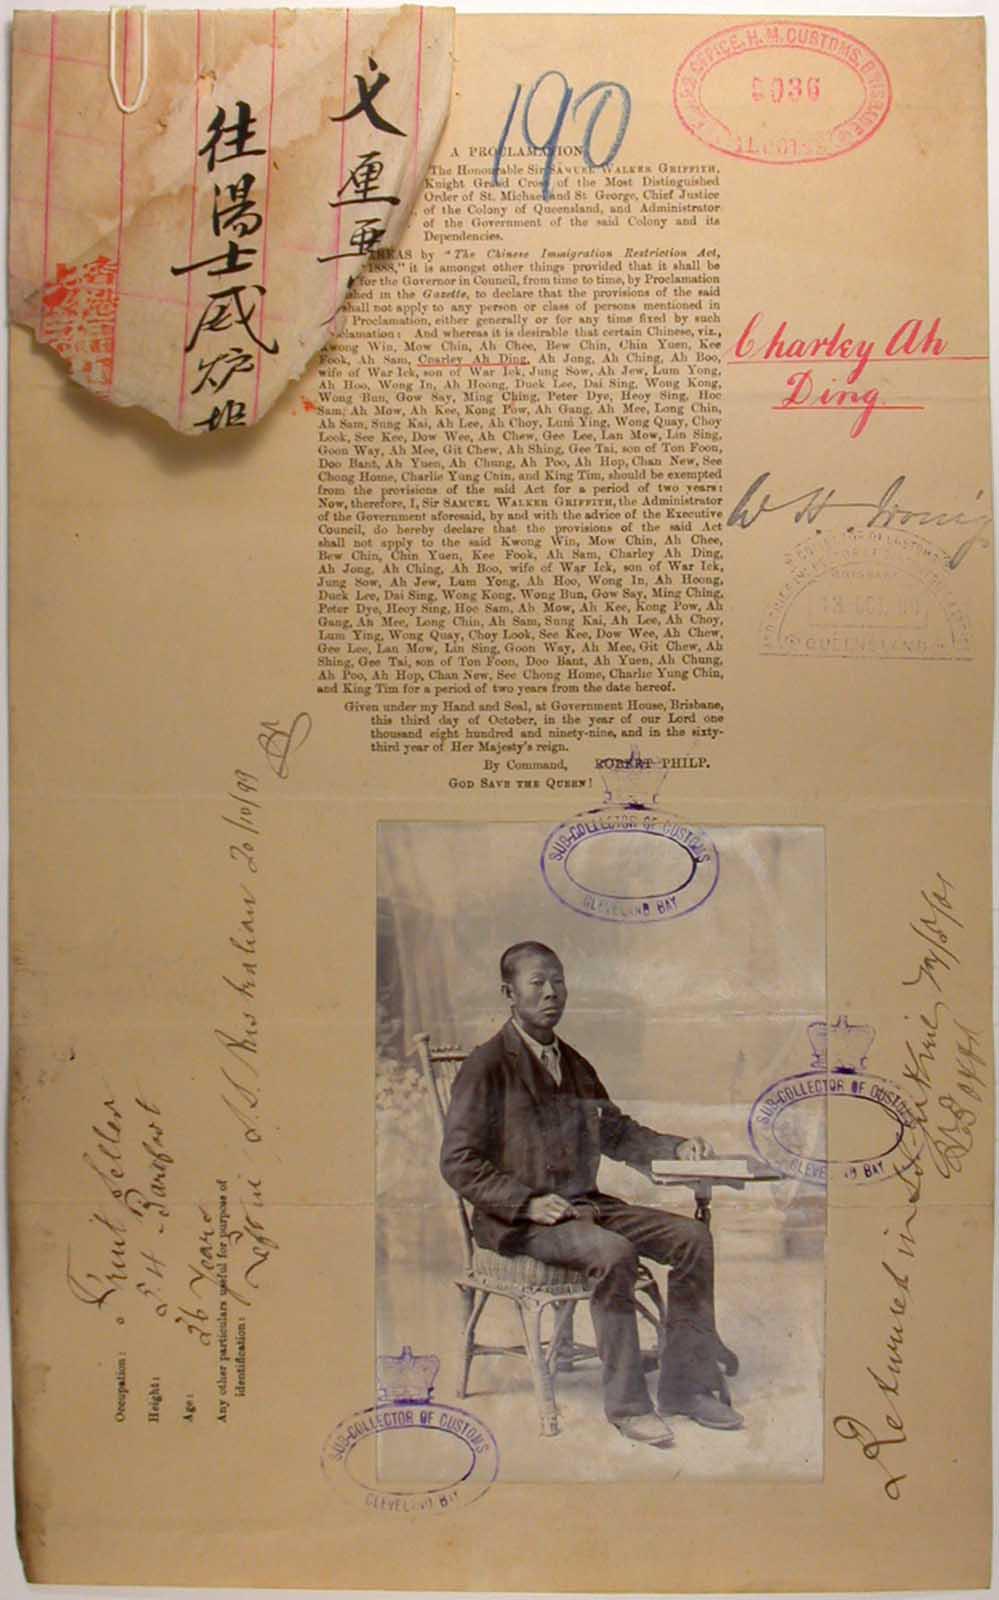 往湯士威炉埠
190
OFFICE, H.M. CUSTOMS, BRISBANE
A PROCLAMATION
The Honourable Sir SAMUEL WALKER GRIFFITH,
Knight Grand Cross of the Most Distinguished
Order of St. Michael and St George, Chief Justice
of the Colony of Queensland, and Administrator
of the Government of the said Colony and its
Dependencies.
by "The Chinese Immigration Restriction Act,
1888," it is amongst other things provided that it shall be
for the Governor in Council, from time to time, by Proclamation
in the Gazette, to declare that the provisions of the said
shall not apply to any person or class of persons mentioned in
Proclamation, either generally or for any time fixed by such
: And whereas it is desirable that certain Chinese, viz.,
Kwong Win, Mow Chin, Ah Chee, Bew Chin, Chin Yuen, Kee
Fook, Ah Sam, Charley Ah Ding, Ah Jong, Ah Ching, Ah Boo,
wife of War Ick, son of War Ick, Jung Sow, Ah Jew, Lum Yong,
Ah Hoo, Wong In, Ah Hoong, Duck Lee, Dai Sing, Wong Kong,
Wong Bun, Gow Say, Ming Ching, Peter Dye, Heoy Sing, Hoc
Sam, Ah Mow, Ah Kee, Kong Pow, Ah Gang, Ah Mee, Long Chin,
Ah Sam, Sung Kai, Ah Lee, Ah Choy, Lum Ying, Wong Quay, Choy
Look, See Kee, Dow Wee, Ah Chew, Gee Lee, Lan Mow, Lin Sing,
Goon Way, Ah Mee, Git Chew, Ah Shing, Gee Tai, son of Ton Foon,
Doo Bant, Ah Yuen, Ah Chung, Ah Poo, Ah Hop, Chan New, See
Chong Home, Charlie Yung Chin, and King Tim, should be exempted
from the provisions of the said Act for a period of two years:
Now, therefore, I, Sir SAMUEL WALKER GRIFFITH, the Administrator
of the Government aforesaid, by and with the advice of the Executive
Council, do hereby declare that the provisions of the said Act
shall not apply to the said Kwong Win, Mow Chin, Ah Chee,
Bew Chin, Chin Yuen, Kee Fook, Ah Sam, Charley Ah Ding,
Ah Jong, Ah Ching, Ah Boo, wife of War Ick, son of War Ick,
Jung Sow, Ah Jew, Lum Yong, Ah Hoo, Wong In, Ah Hoong,
Duck Lee, Dai Sing, Wong Kong, Wong Bun, Gow Say, Ming Ching,
Peter Dye, Heoy Sing, Hoc Sam, Ah Mow, Ah Kee, Kong Pow, Ah
Gang, Ah Mee, Long Chin, Ah Sam, Sung Kai, Ah Lee, Ah Choy,
Lum Ying, Wong Quay, Choy Look, See Kee, Dow Wee, Ah Chew,
Gee Lee, Lan Mow, Lin Sing, Goon Way, Ah Mee, Git Chew, Ah
Shing, Gee Tai, son of Ton Foon, Doo Bant, Ah Yuen, Ah Chung,
Ah Poo, Ah Hop, Chan New, See Chong Home, Charlie Yung Chin,
and King Tim for a period of two years from the date hereof.
Given under my Hand and Seal, at Government House, Brisbane,
this third day of October, in the year of our Lord one
thousand eight hundred and ninety-nine, and in the sixty-
third year of Her Majesty's reign.
By Command, ROBERT PHILP.
GOD SAVE THE QUEEN!
Charley Ah
Ding
W H Irving
COLLECTOR OF CUSTOMS
BRISBANE
QUEENSLAND
SUB-COLLECTOR OF CUSTOMS
CLEVELAND BAY
SUB-COLLECTOR OF CUSTOMS
CLEVELAND BAY
SUB-COLLECTOR OF CUSTOMS
CLEVELAND BAY
Occupation: Fruit Seller
Height: 5.4 - Barefoot
Age: 26 Years
Any other particulars useful for purpose of
identification:
Left in S.S. Australian 20/10/99
Returned in